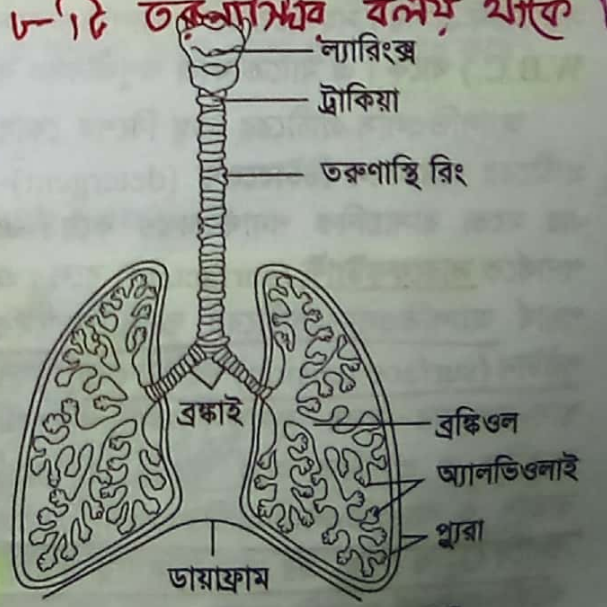 তরুণাস্থির বলয় থাকে
ল্যারিংক্স
ট্রাকিয়া
তরুণাস্থি রিং
ব্রঙ্কাই
ব্রঙ্কিওল
অ্যালভিওলাই
প্লুরা
ডায়াফ্রাম